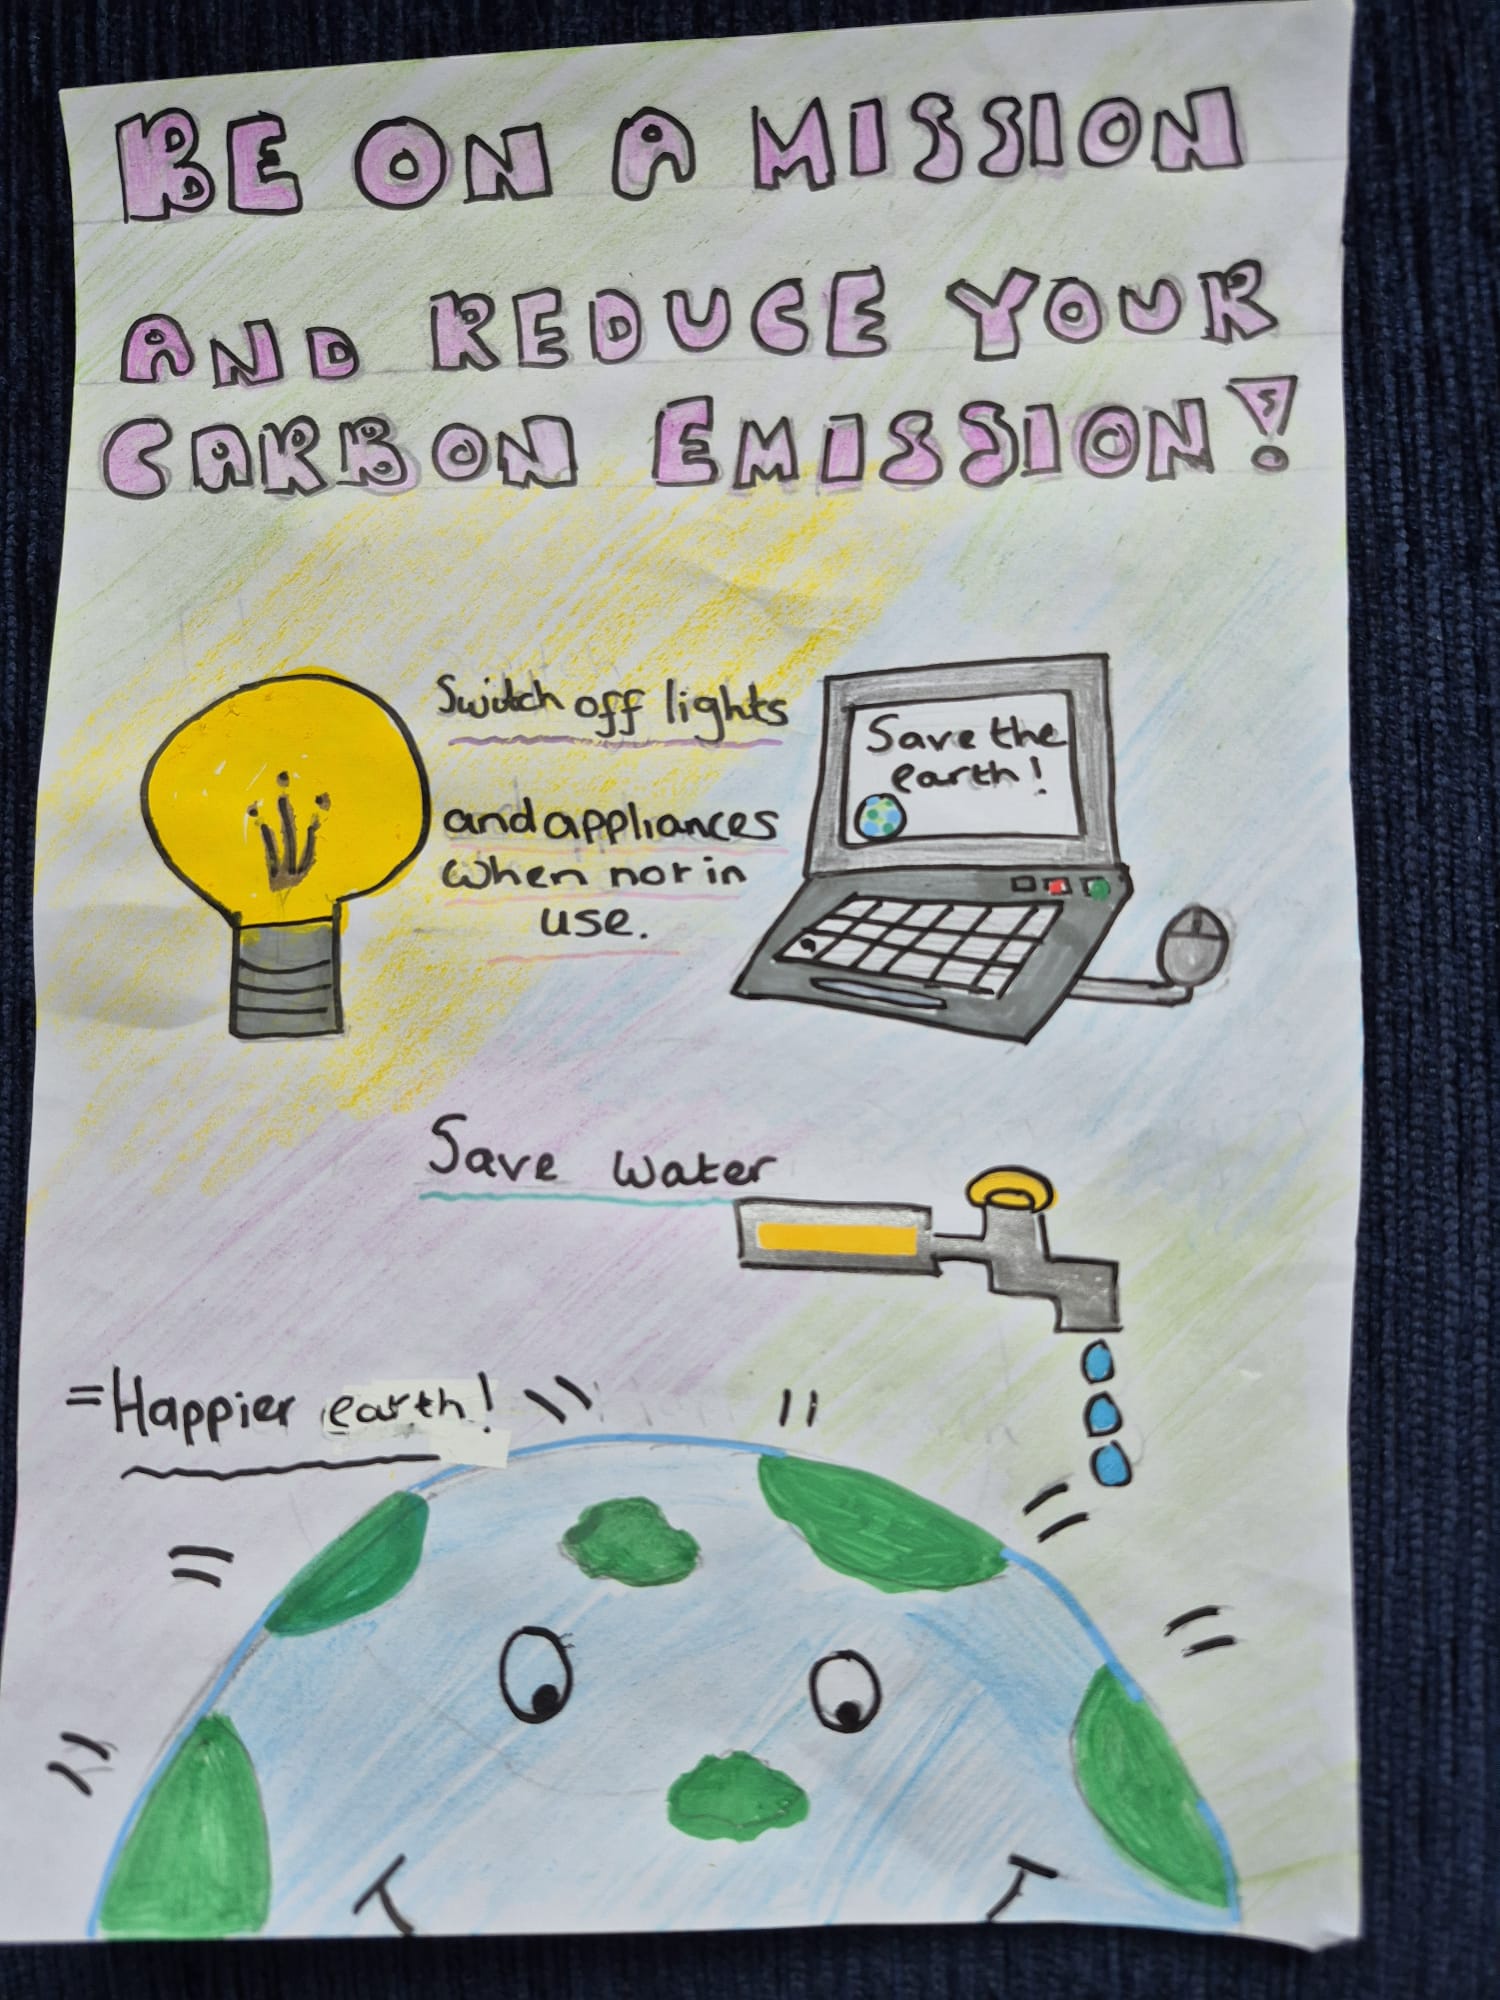 BE ON A MISSION
AND REDUCE YOUR
CARBON EMISSION!
Switch off lights
and appliances
when not in
use.
Save the
earth!
Save water
=Happier earth!